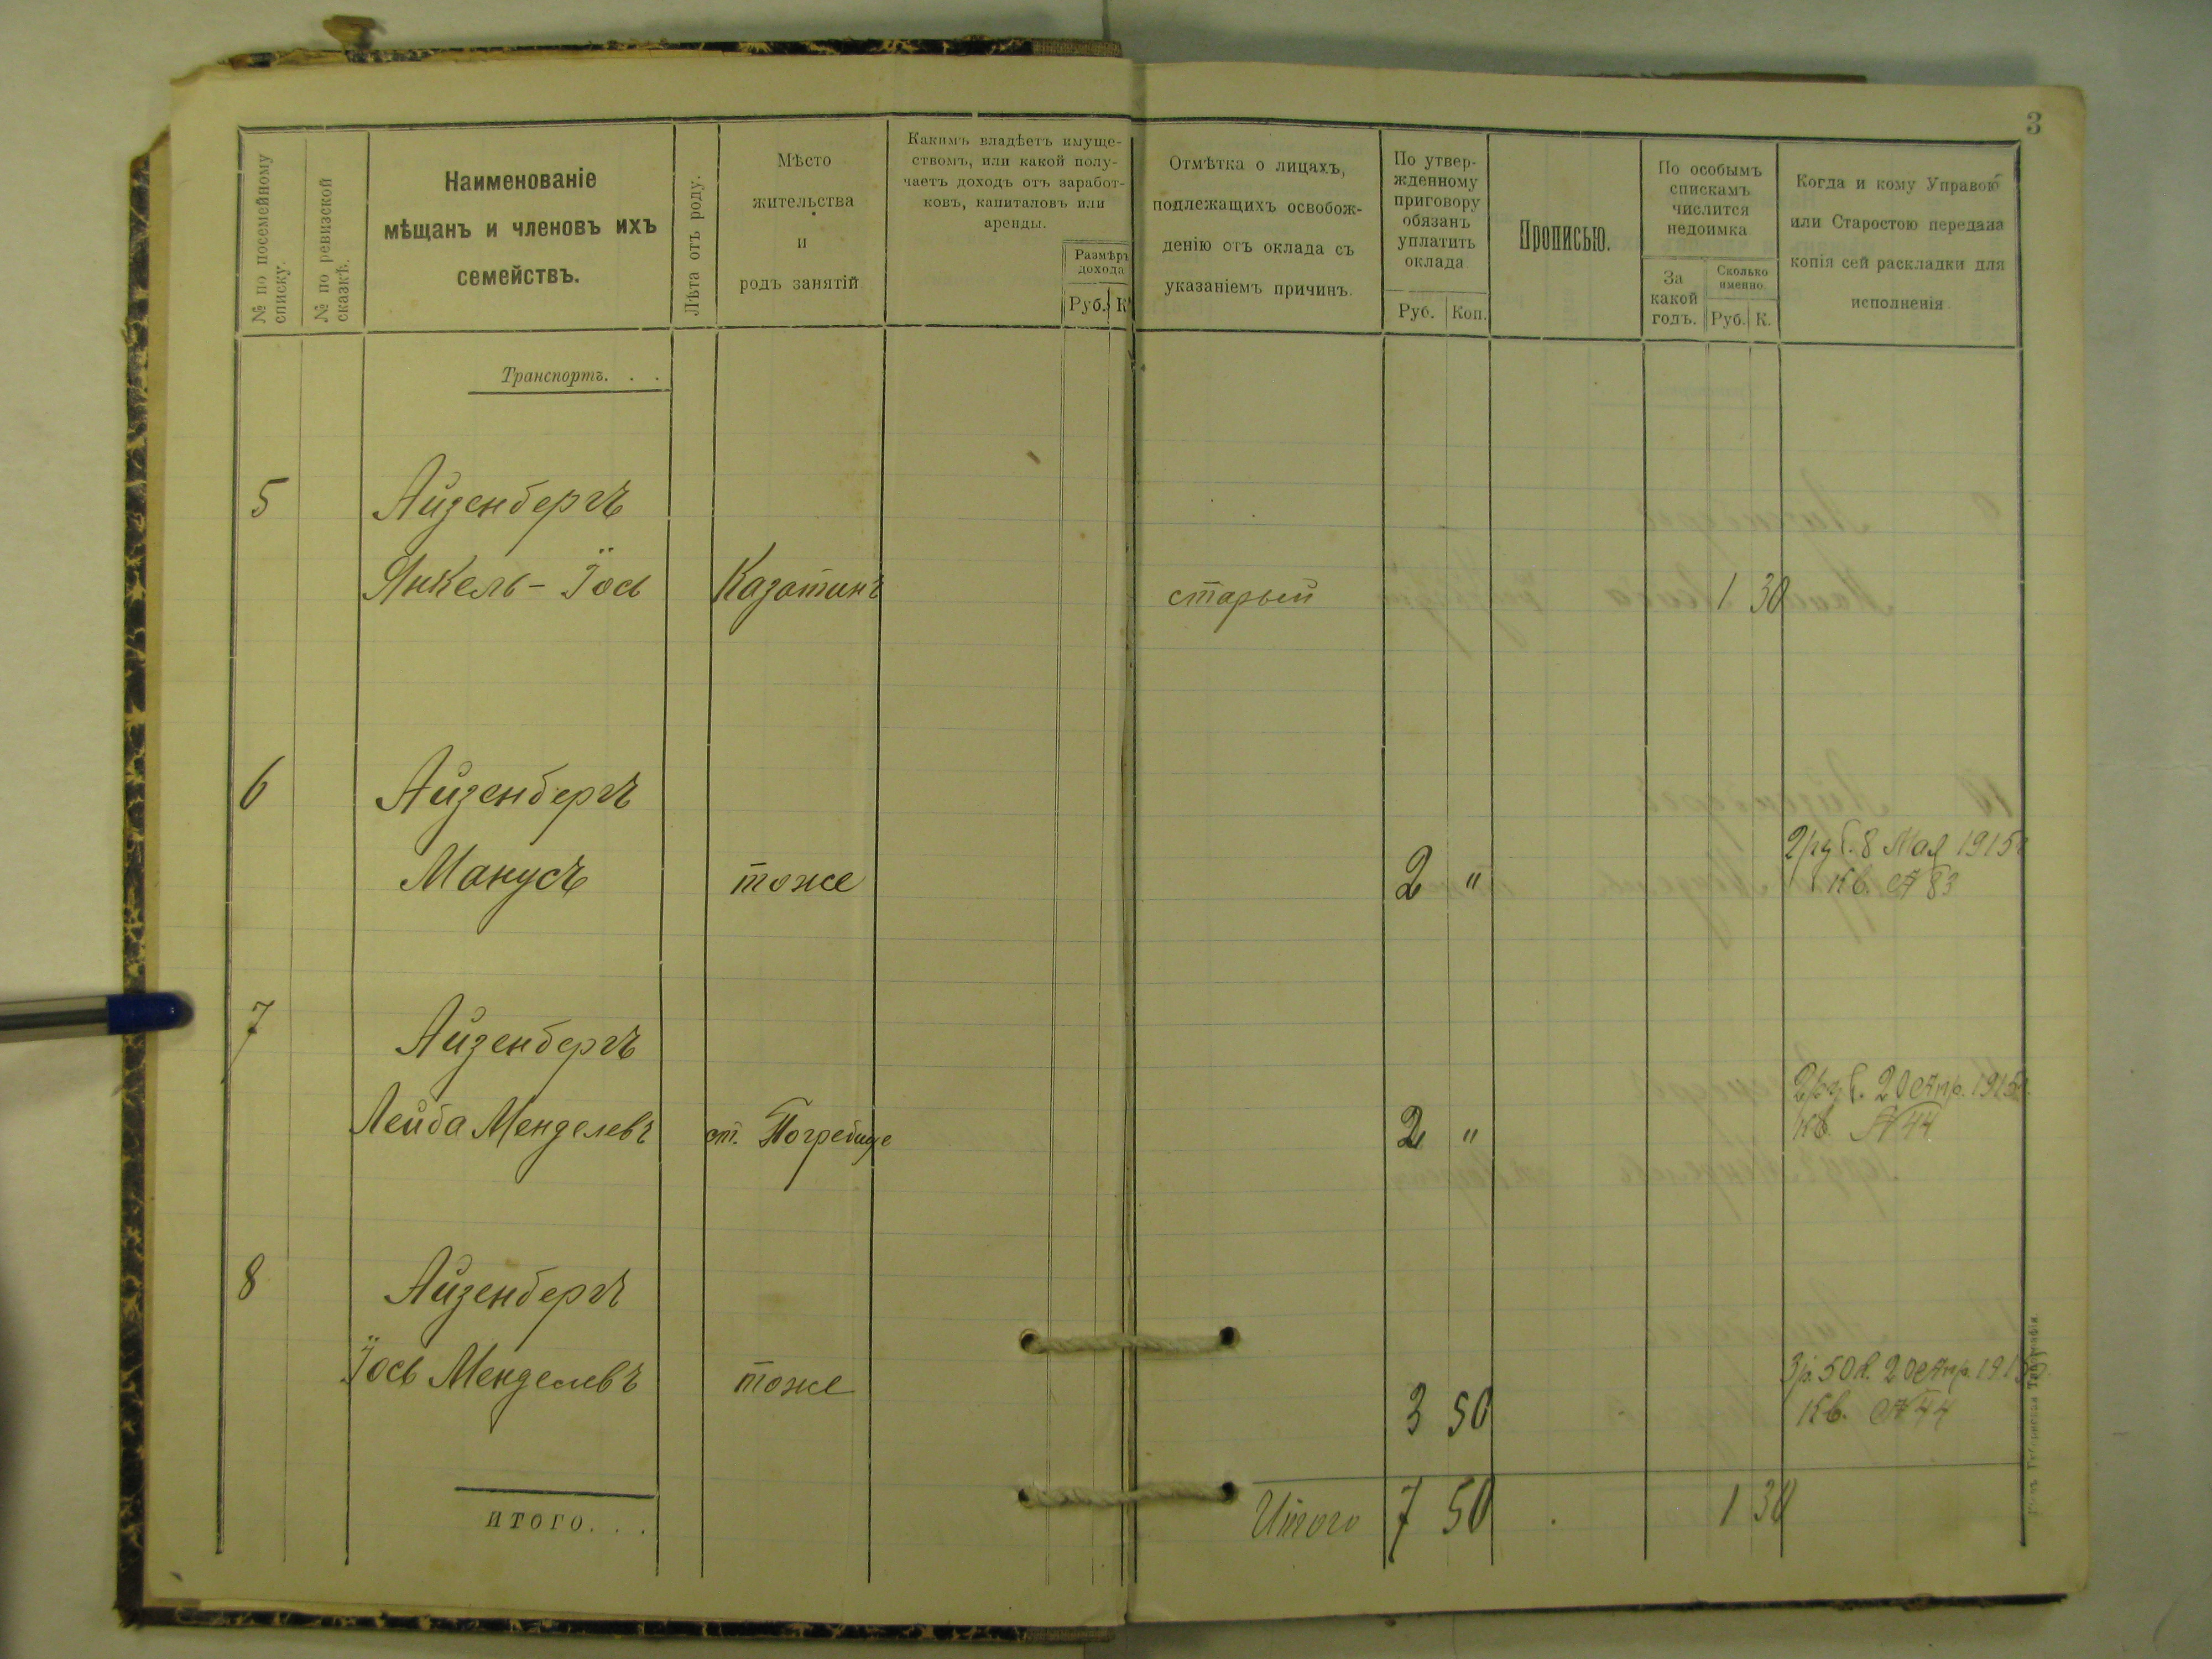 3
№ по посемейному списку.
№ по ревизской сказкѣ.
Наименованіе
мѣщанъ и членовъ ихъ
семействъ.
Лѣта отъ роду.
Мѣсто
жительства
и
родъ занятій
Какимъ владѣетъ имуще-
ствомъ, или какой полу-
чаетъ доходъ отъ заработ-
ковъ, капиталовъ или
аренды.
Размѣръ
дохода
Руб. К
Отмѣтка о лицахъ,
подлежащихъ освобож-
денію отъ оклада съ
указаніемъ причинъ.
По утвер-
жденному
приговору
обязанъ
уплатить
оклада
Руб. Коп.
Прописью.
По особымъ
спискамъ
числится
недоимка
За
какой
годъ.
Сколько
именно.
Руб. К.
Когда и кому Управою
или Старостою передана
копія сей раскладки для
исполненія
Транспортъ. . .
5 Айзенбергъ
Янкель - Іось Казатинъ старый 1 30
6 Айзенбергъ
Манусъ тоже 2 "
2 руб. 8 Мая 1915г
Кв. № 83
7 Айзенбергъ
Лейба Менделевъ ст. Погребище 2 "
2 руб. 20 Апр. 1915г.
Кв. № 44
8 Айзенбергъ
Іось Менделевъ тоже 3 50
3 р. 50 к. 20 Апр. 1915г.
Кв. № 44
итого. . .
Итого 7 50 1 30